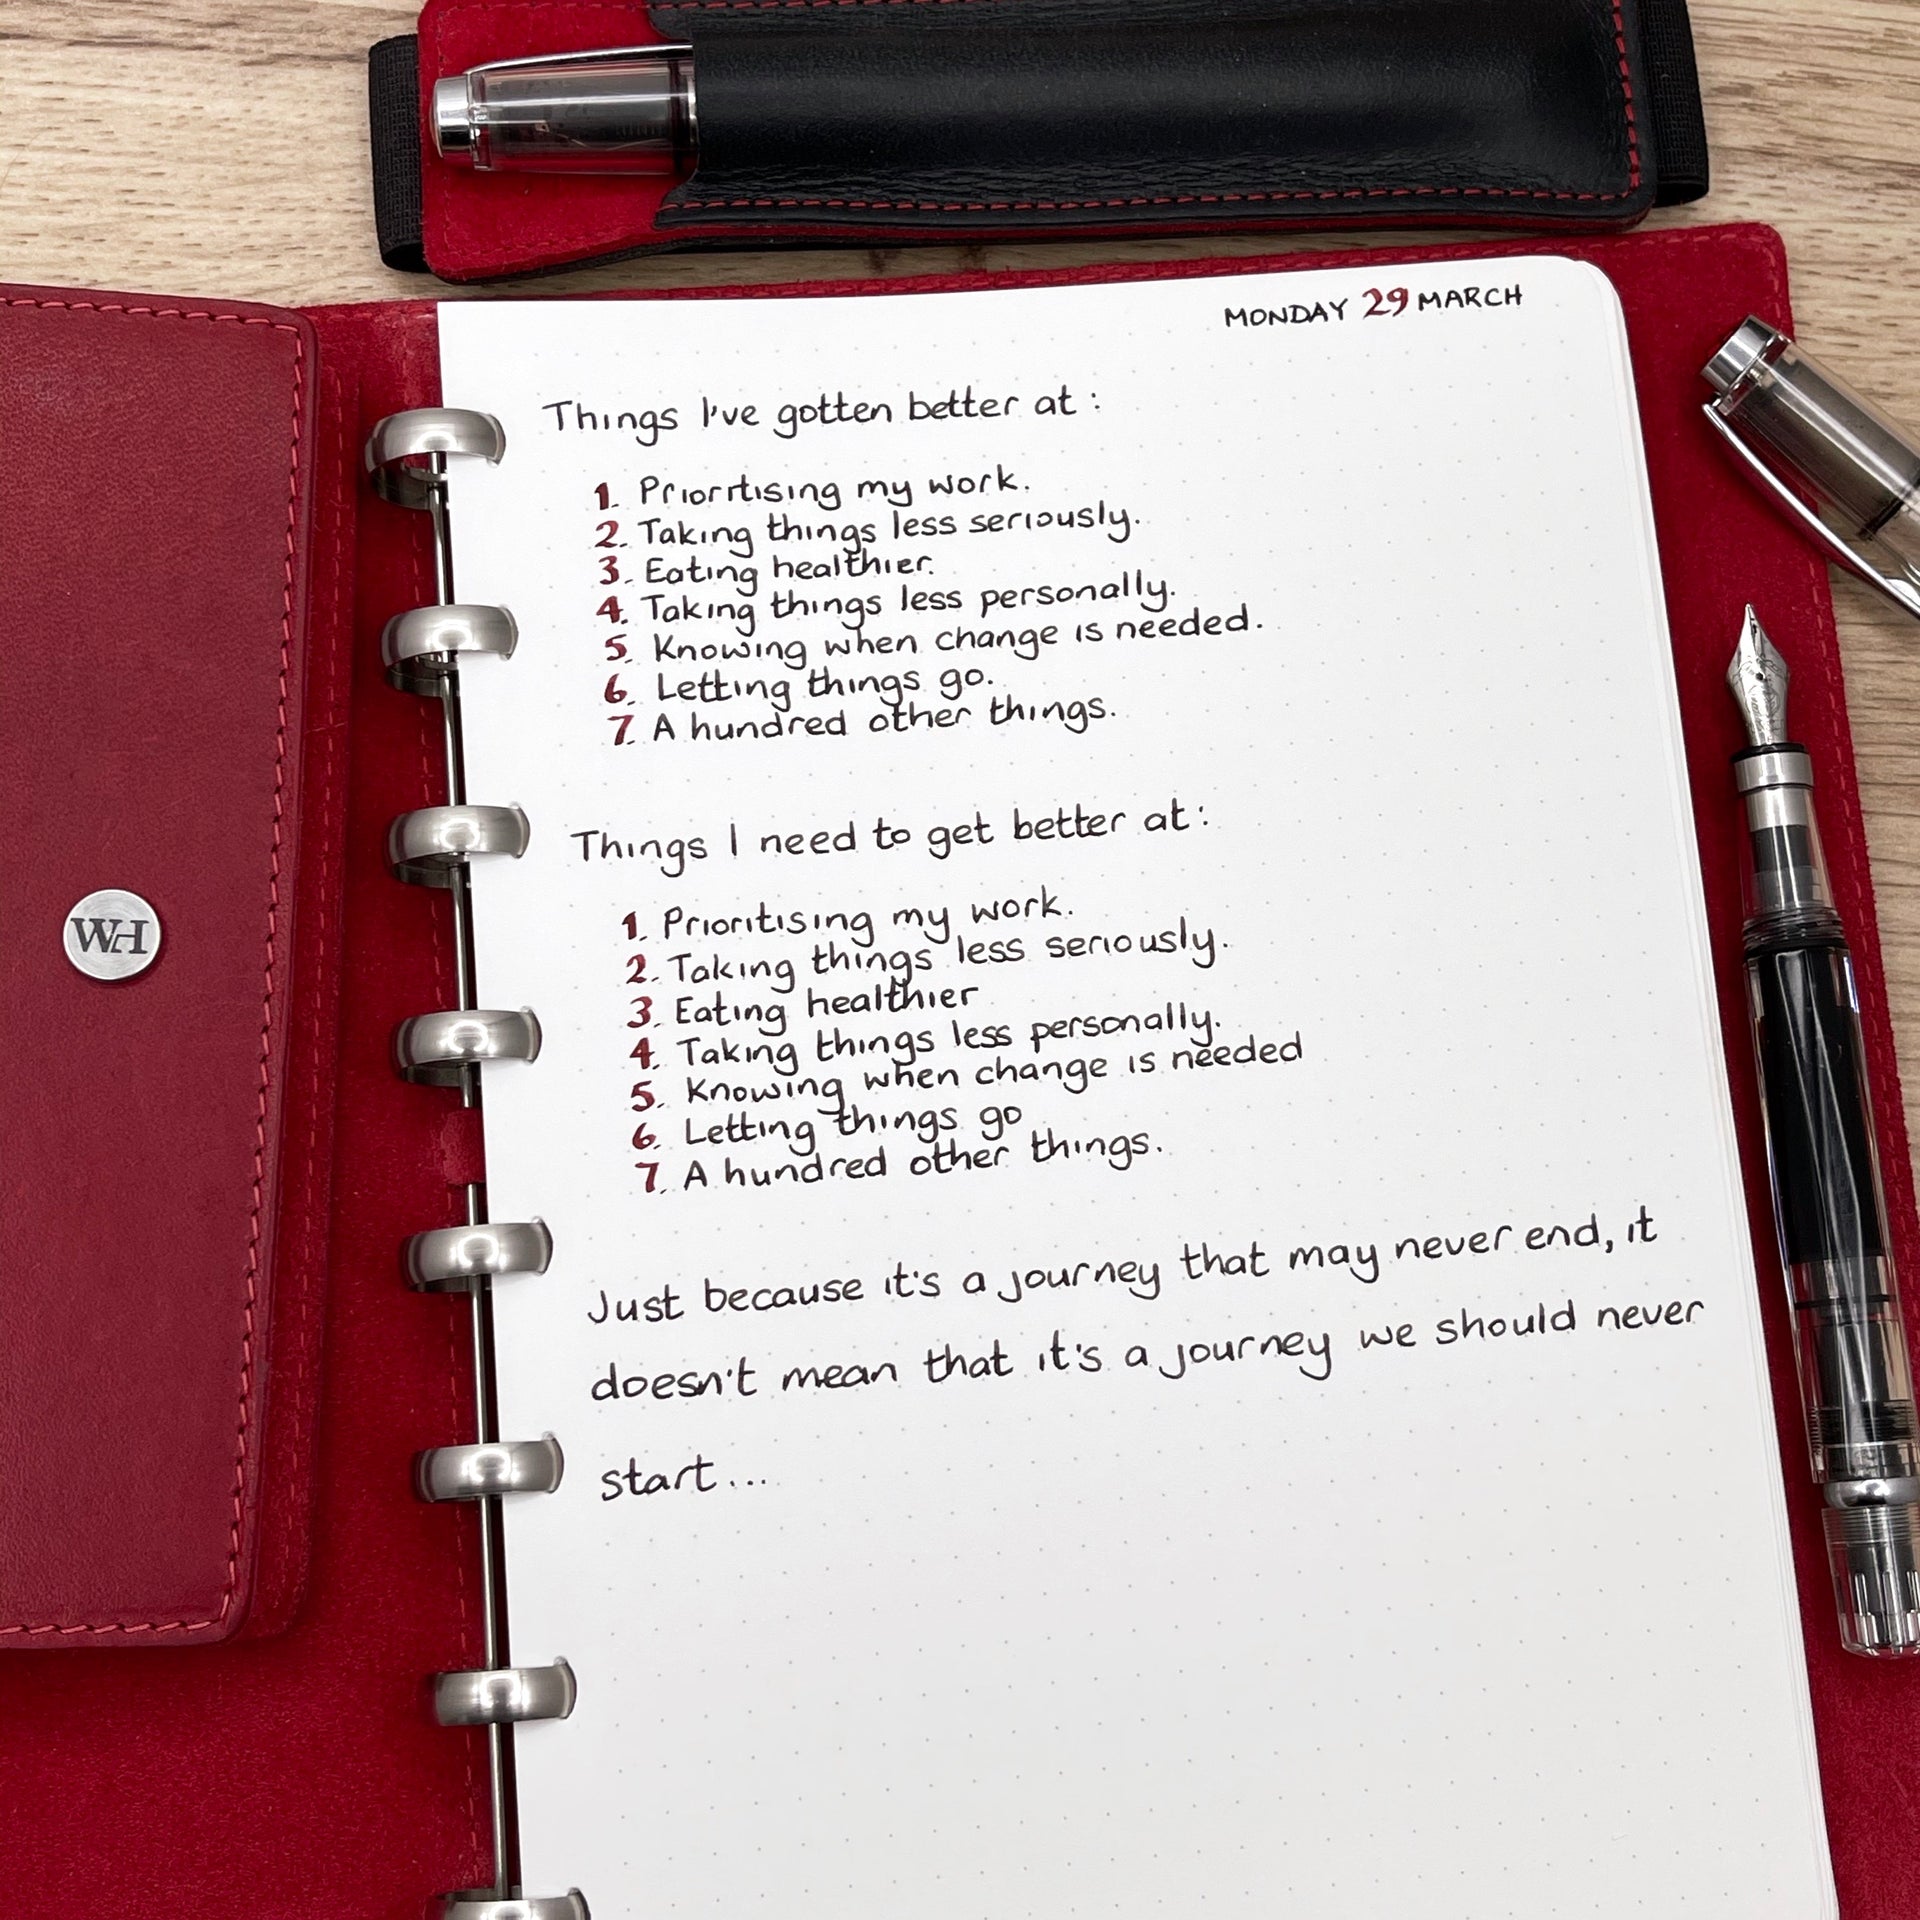 MONDAY 29 MARCH
Things I've gotten better at:
1. Prioritising my work.
2. Taking things less seriously.
3. Eating healthier.
4. Taking things less personally.
5. Knowing when change is needed.
6. Letting things go.
7. A hundred other things.
Things I need to get better at:
1. Prioritising my work.
2. Taking things less seriously.
3. Eating healthier
4. Taking things less personally.
5. Knowing when change is needed
6. Letting things go
7. A hundred other things.
Just because it's a journey that may never end, it
doesn't mean that it's a journey we should never
start...
WH